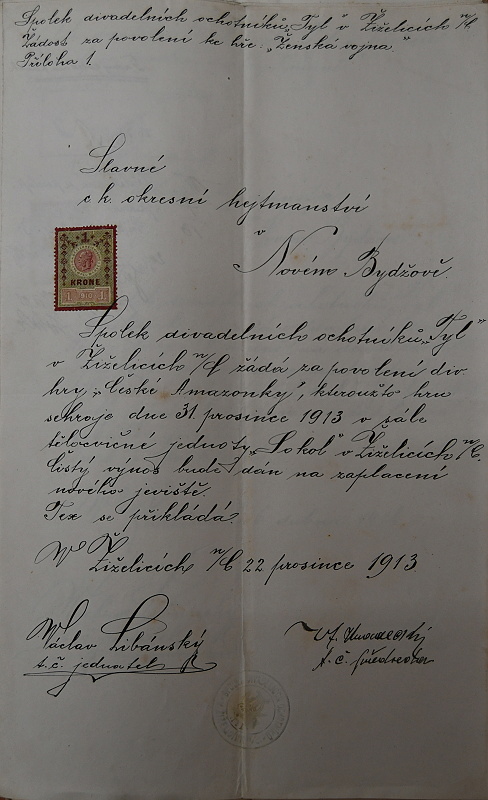 Spolek divadelních ochotníků „Tyl“ v Žiželicích n/C
Žádost za povolení ke hře: „Ženská vojna“
Příloha 1.
Slavné
c k. okresní hejtmanství
v
Novém Bydžově.
1
KRONE
1 1910 1
Spolek divadelních ochotníků „Tyl“
v Žiželicích n/C žádá za povolení div.
hry „České Amazonky“, kteroužto hru
sehraje dne 31. prosince 1913 v sále
tělocvičné jednoty „Sokol“ v Žiželicích n/C.
Čistý výnos bude dán na zaplacení
nového jeviště.
Tex se přikládá.
W Žiželicích n/C 22 prosince 1913
Václav Libánský
t. č. jednatel
t. č. předseda